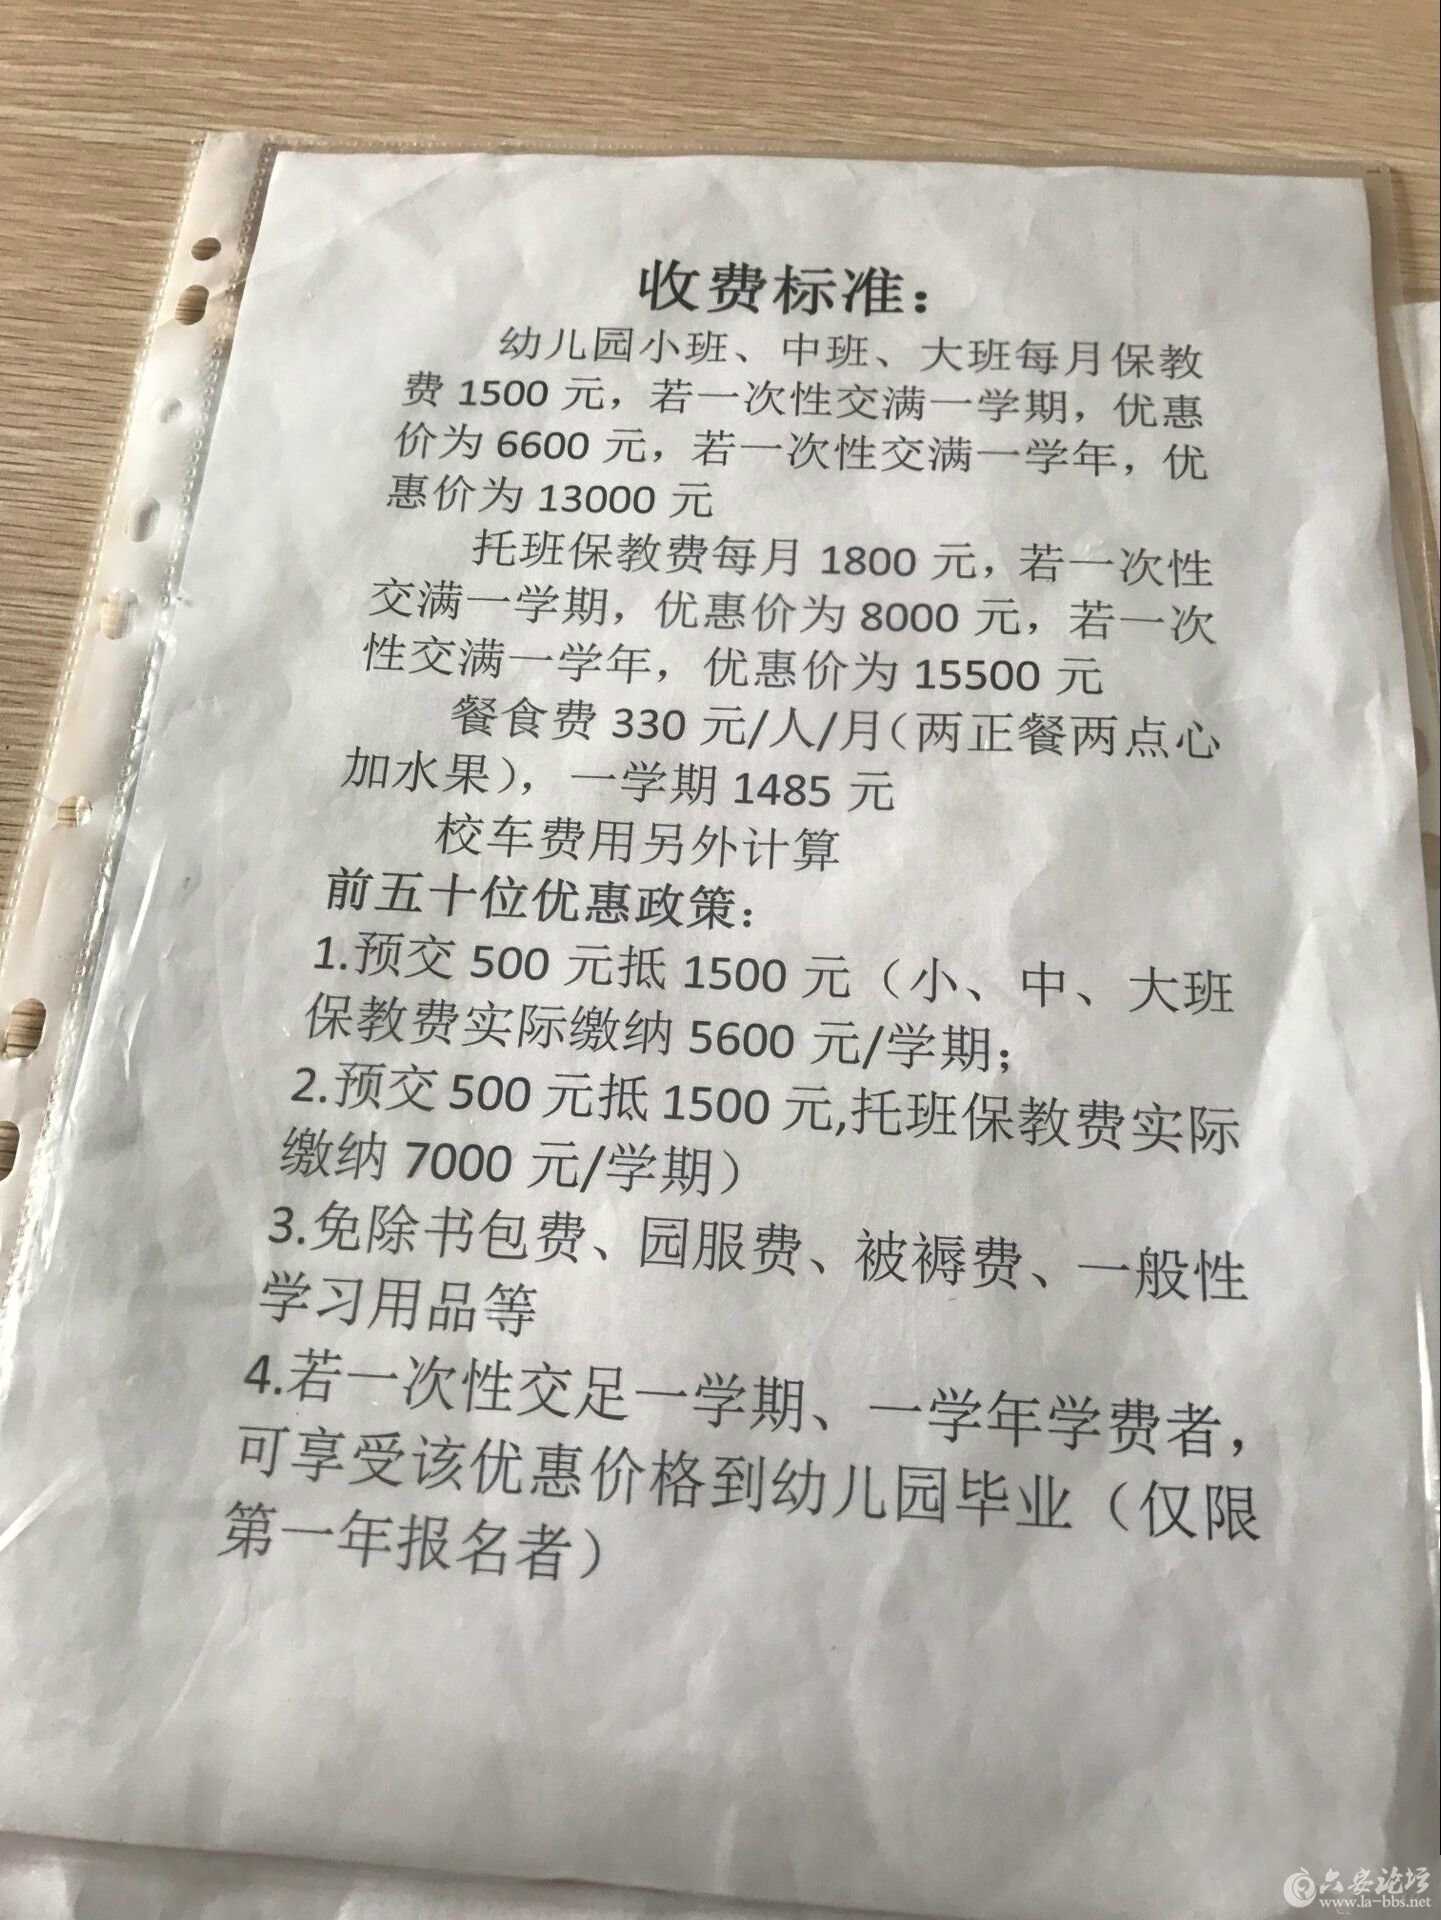 收费标准：
幼儿园小班、中班、大班每月保教
费 1500 元，若一次性交满一学期，优惠
价为 6600 元，若一次性交满一学年，优
惠价为 13000 元
托班保教费每月 1800 元，若一次性
交满一学期，优惠价为 8000 元，若一次
性交满一学年，优惠价为 15500 元
餐食费 330 元/人/月（两正餐两点心
加水果），一学期 1485 元
校车费用另外计算
前五十位优惠政策：
1.预交 500 元抵 1500 元（小、中、大班
保教费实际缴纳 5600 元/学期；
2.预交 500 元抵 1500 元,托班保教费实际
缴纳 7000 元/学期）
3.免除书包费、园服费、被褥费、一般性
学习用品等
4.若一次性交足一学期、一学年学费者，
可享受该优惠价格到幼儿园毕业（仅限
第一年报名者）
六安论坛
www.la-bbs.net